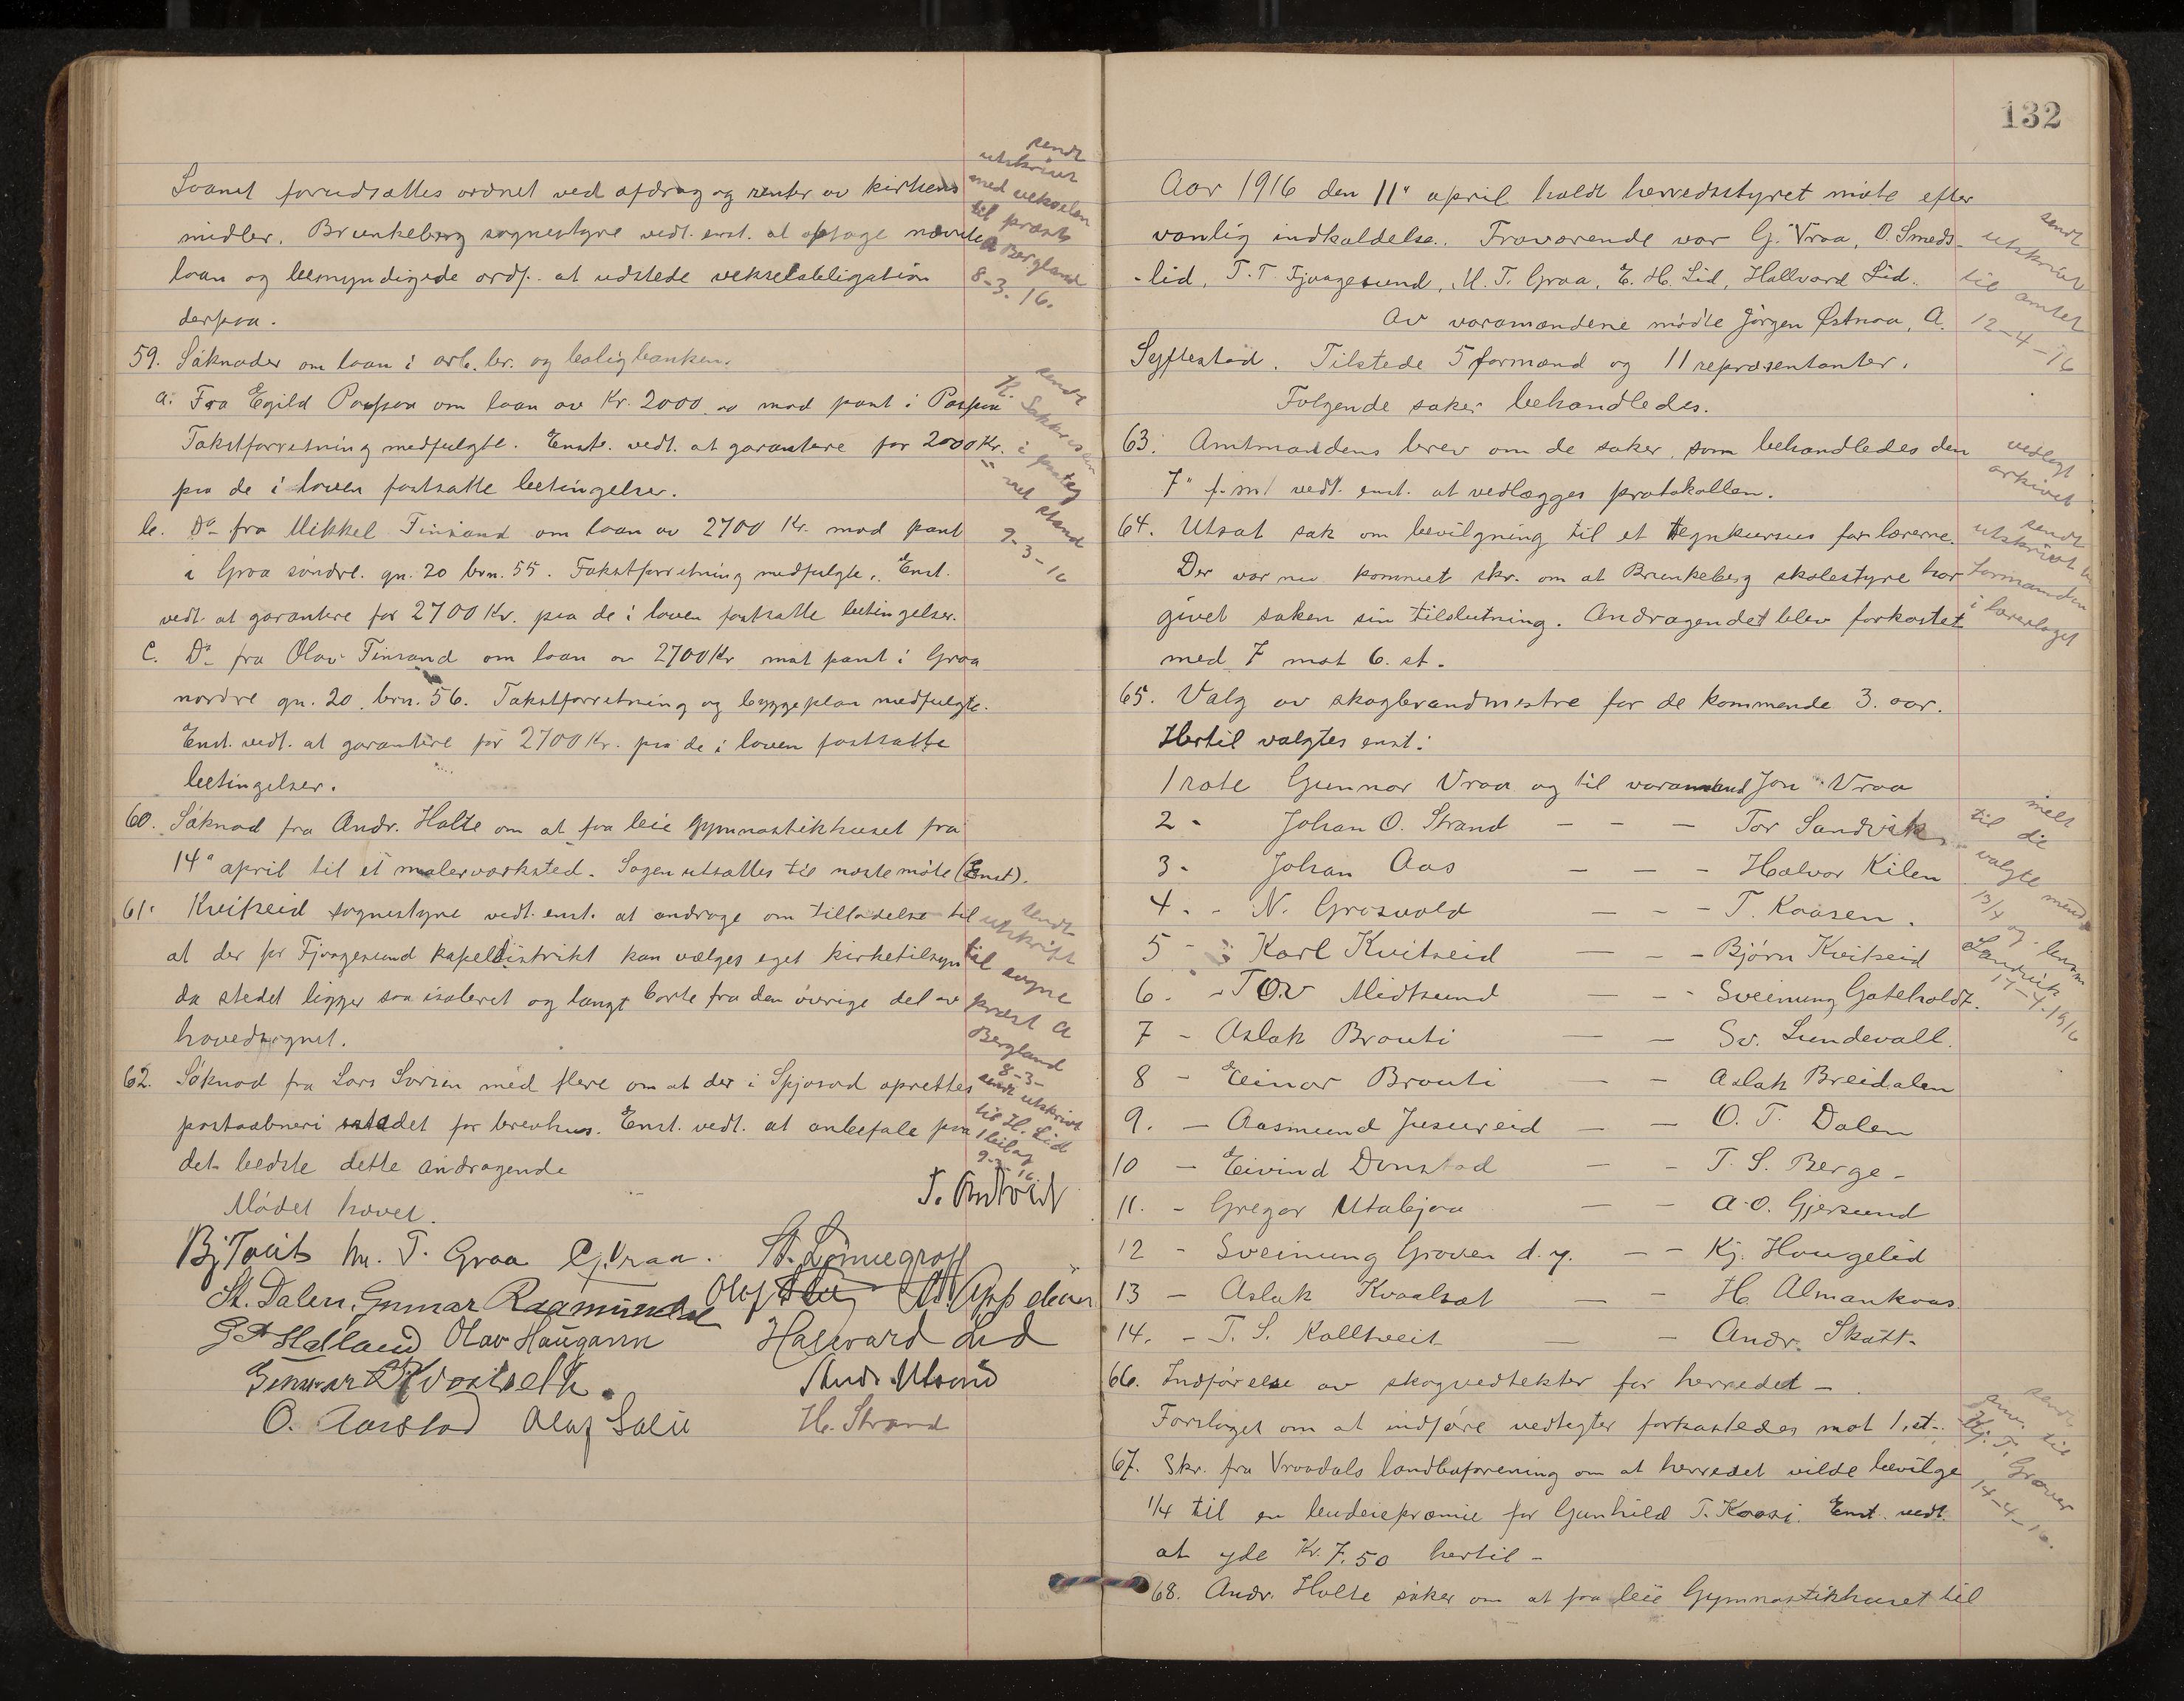 Loanet forudsættes ordnet ved afdrag og renter av kirkens
midler. Brunkeberg sognestyre vedt. enst. at optage nævnte
loan og bemyndigede ordf. at udstede vekselobligation
derpaa.
59. Søknader om laan i arb. br. og boligbanken.
a. Fra Egild om laan av Kr. 2000.00 mod pant i
Takstforretning medfulgte. Enst. vedt. at garantere for 2000 Kr.
paa de i loven fastsatte betingelser.
b. Do fra Mikkel Tinsand om laan av 2700 Kr. mod pant
i Groa søndre. gn. 20 brn. 55. Takstforretning medfulgte. Enst.
vedt. at garantere for 2700 Kr. paa de i loven fastsatte betingelser.
C. Do fra Olav Tinsand om laan av 2700 Kr mot pant i Groa
nordre gn. 20. brn. 56. Takstforretning og byggeplan medfulgte.
Enst. vedt. at garantere for 2700 Kr. paa de i loven fastsatte
betingelser.
60. Søknad fra Andr. Holte om at faa leie Gymnastikhuset fra
14" april til et malerværksted. Sagen utsættes til næste møte (Enst).
61. Kviteseid sognestyre vedt. enst. at androge om tilladelse til
at der for Fjaagesund kapeldistrikt kan vælges eget kirketilsyn
da stedet ligger saa isoleret og langt borte fra den øvrige del av
hovedsognet.
62. Søknad fra Lars Larsen med flere om at der i Spjosod oprettes
postaabneri istedet for brevhus. Enst. vedt. at anbefale paa
det bedste dette andragende
Mødet hævet.
Bj Tveit M. T. Groa G. Vraa. St. Lønnegrav
St. Dalen. Gunnar Olaf
Olav Haugann Hallvard Lid
Gunnar
O. Aarstad Olaf H. Strand
sendt
utskrivt
med vekselen
til præst
A Bergland
8-3-16.
sendt
9-3-16
sendt
utskrift
til sogne
præst A
Bergland
8-3-
sendt utskrivt
til H. Lid
1 bilag
132
Aar 1916 den 11" april holdt herredsstyret møte efter
vanlig indkaldelse. Fraværende var G. Vraa, O. Smeds-
-lid, T. T. Fjaagesund, M. T. Groa, E. H. Lid, Hallvard Lid.
Av varamændene mødte Jørgen Østnaa, A.
Tilstede 5 formænd og 11 repræsentanter.
Følgende saker behandledes.
63. Amtmandens brev om de saker, som behandledes den
7" f. m. vedt. enst. at vedlægges protokollen.
64. Utsat sak om bevilgning til et tegnkursus for lærerne.
Der var nu kommet skr. om at Brunkeberg skolestyre har
givet saken sin tilslutning. Andragendet blev forkastet
med 7 mot 6. st.
65. Valg av skogbrandmestre for de kommende 3. aar.
Hertil valgtes enst:
1 rote Gunnar Vraa og til varamand Jon Vraa
2 - Johan O. Strand - - - Tor Sandvik
3 - Johan Aas - - - Halvor Kilen
4. - N. Groswold - - - T. Kaasen.
5 - Karl Kvitseid - - - Bjørn Kvitseid
6. - Tov Midtsund - - - Sveinung Gateholdt.
7 - Aslak Brauti - - Sv. Lundevall.
8 - Einar Brauti - - Aslak Breidalen
9. - Aasmund Jusureid - - O. T. Dalen
10 - Eivind Dønstad - - T. S. Berge -
11. - Gregar Utabjaa - - A. O. Gjersund
12 - Sveinung Groven d. y. - - Kj. Haugelid
13 - Aslak Kvaalsat - - H. Almankaas
14. - T. S. Kolltveit - - Andr. Skatt.
66. Indførelse av skogvedtekter for herredet -
Forslaget om at indføre vedtegter forkastedes mot 1. st.
67. Skr. fra Vraadals landboforening om at herredet vilde bevilge
1/4 til en budeiepræmie for Gunhild T. Kaasi. Enst. vedt.
at yde Kr. 7.50 hertil -
68. Andr. Holte søker om at faa leie Gymnastikhuset til
sendt
utskrivt
til amtet
12-4-16
vedlagt
arkivet
sendt
utskrivt til
formanden
i lærerlaget
melt
til de
valgte mænd
13/4
og lensm
Landvik
14-4-1916
sendt
til
T. Groven
14-4-16.